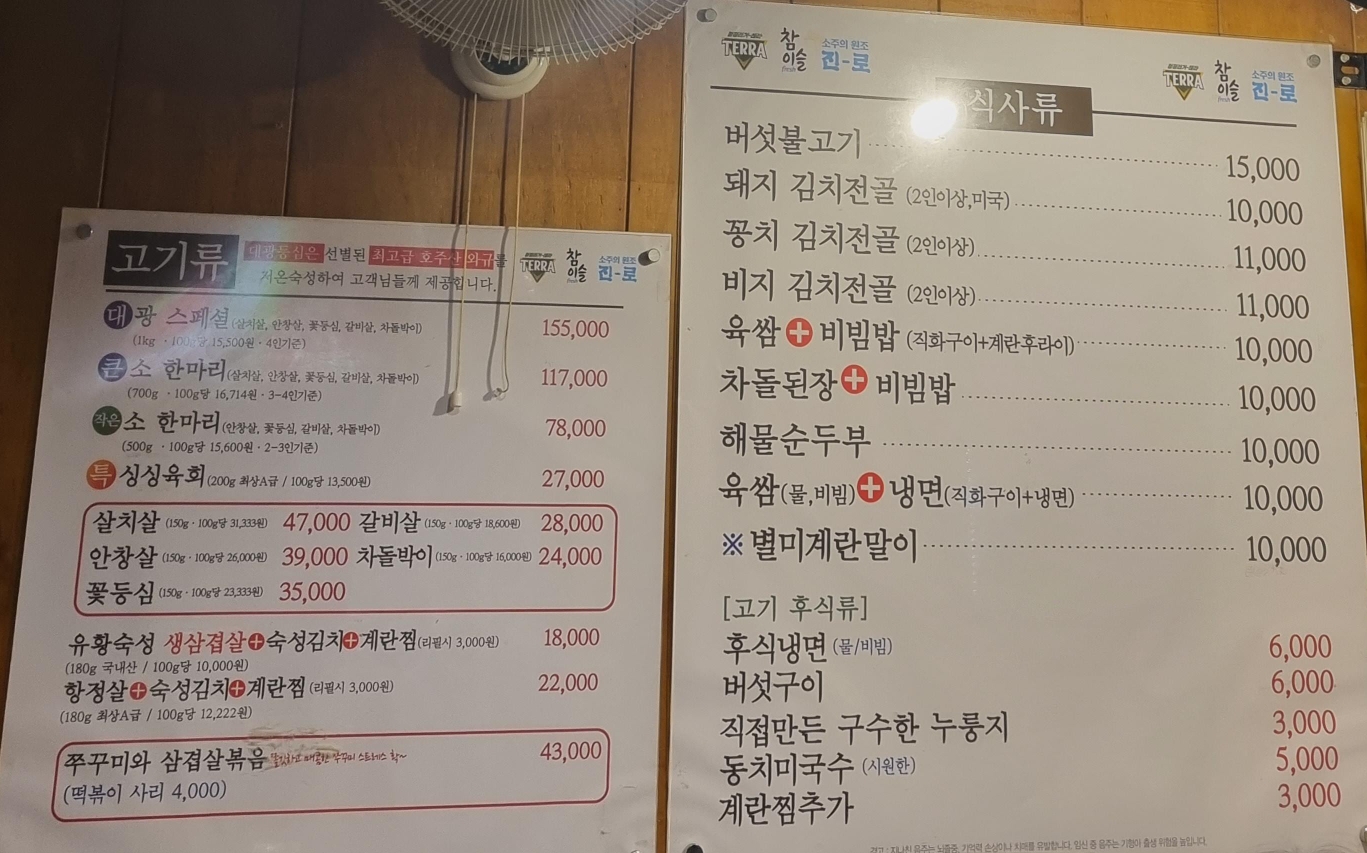 고기류
대광등심은 선별된 최고급 호주산 와규를
저온숙성하여 고객님들께 제공합니다.
TERRA 참이슬 fresh 소주의 원조 진-로
대광 스페셜 (살치살, 안창살, 꽃등심, 갈비살, 차돌박이) 155,000
(1kg · 100g당 15,500원 · 4인기준)
큰 소 한마리 (살치살, 안창살, 꽃등심, 갈비살, 차돌박이) 117,000
(700g · 100g당 16,714원 · 3~4인기준)
작은 소 한마리 (안창살, 꽃등심, 갈비살, 차돌박이) 78,000
(500g · 100g당 15,600원 · 2~3인기준)
특 싱싱육회 (200g 최상A급 / 100g당 13,500원) 27,000
살치살 (150g · 100g당 31,333원) 47,000 갈비살 (150g · 100g당 18,600원) 28,000
안창살 (150g · 100g당 26,000원) 39,000 차돌박이 (150g · 100g당 16,000원) 24,000
꽃등심 (150g · 100g당 23,333원) 35,000
유황숙성 생삼겹살+숙성김치+계란찜 (리필시 3,000원) 18,000
(180g 국내산 / 100g당 10,000원)
항정살+숙성김치+계란찜 (리필시 3,000원) 22,000
(180g 최상A급 / 100g당 12,222원)
쭈꾸미와 삼겹살볶음 매콤한 쭈꾸미 스트레스 확~ 43,000
(떡볶이 사리 4,000)
TERRA 참이슬 fresh 소주의 원조 진-로
TERRA 참이슬 fresh 소주의 원조 진-로
식사류
버섯불고기 15,000
돼지 김치전골 (2인이상,미국) 10,000
꽁치 김치전골 (2인이상) 11,000
비지 김치전골 (2인이상) 11,000
육쌈+비빔밥 (직화구이+계란후라이) 10,000
차돌된장+비빔밥 10,000
해물순두부 10,000
육쌈(물,비빔)+냉면(직화구이+냉면) 10,000
※별미계란말이 10,000
[고기 후식류]
후식냉면 (물/비빔) 6,000
버섯구이 6,000
직접만든 구수한 누룽지 3,000
동치미국수 (시원한) 5,000
계란찜추가 3,000
경고 : 지나친 음주는 뇌졸중, 기억력 손상이나 치매를 유발합니다. 임신 중 음주는 기형아 출생 위험을 높입니다.